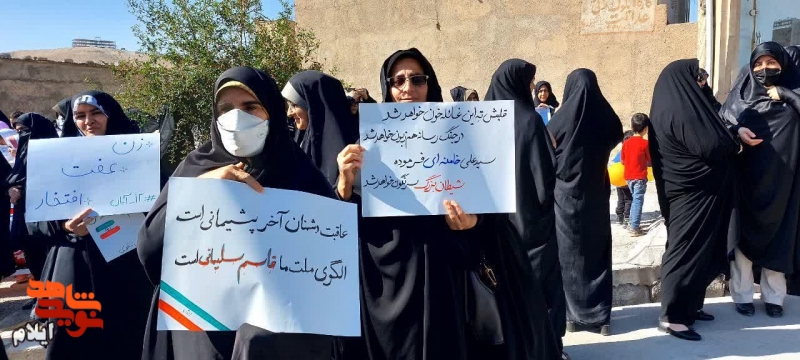 زن
عفت
افتخار
#۱۳_آبان
عاقبت دشمنان آخر پشیمانی است
الگوی ملت ما قاسم سلیمانی است
قلبش ته این غائله خون خواهد شد
در جنگ رسانه هم زبون خواهد شد
سید علی خامنه ای فرموده
شیطان بزرگ سرنگون خواهد شد
نوید شاهد
ایلام